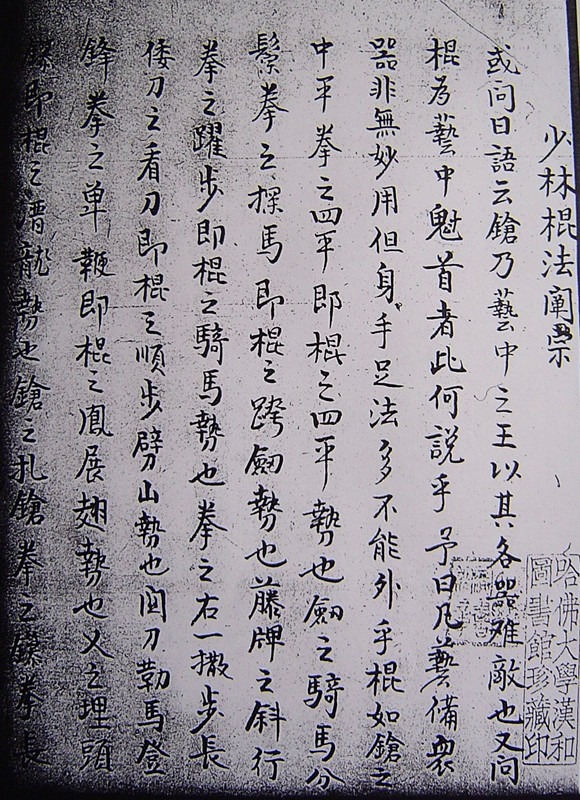 少林棍法闡宗
或問曰語云鎗乃藝中之王以其各器难敵也又問
棍為藝中魁首者此何説乎予曰凡藝備衆
器非無妙用但身手足法多不能外乎棍如鎗之
中平拳之四平即棍之四平勢也劒之騎馬分
鬃拳之探馬即棍之跨劒勢也藤牌之斜行
拳之躍步即棍之騎馬勢也拳之右一撒步長
倭刀之看刀即棍之順步劈山勢也関刀勒馬登
鋒拳之单鞭即棍之鳳展翅勢也乂之埋頭
即棍之潛龍勢也鎗之扎鎗拳之拳長
哈佛大學漢和
圖書館珍藏印